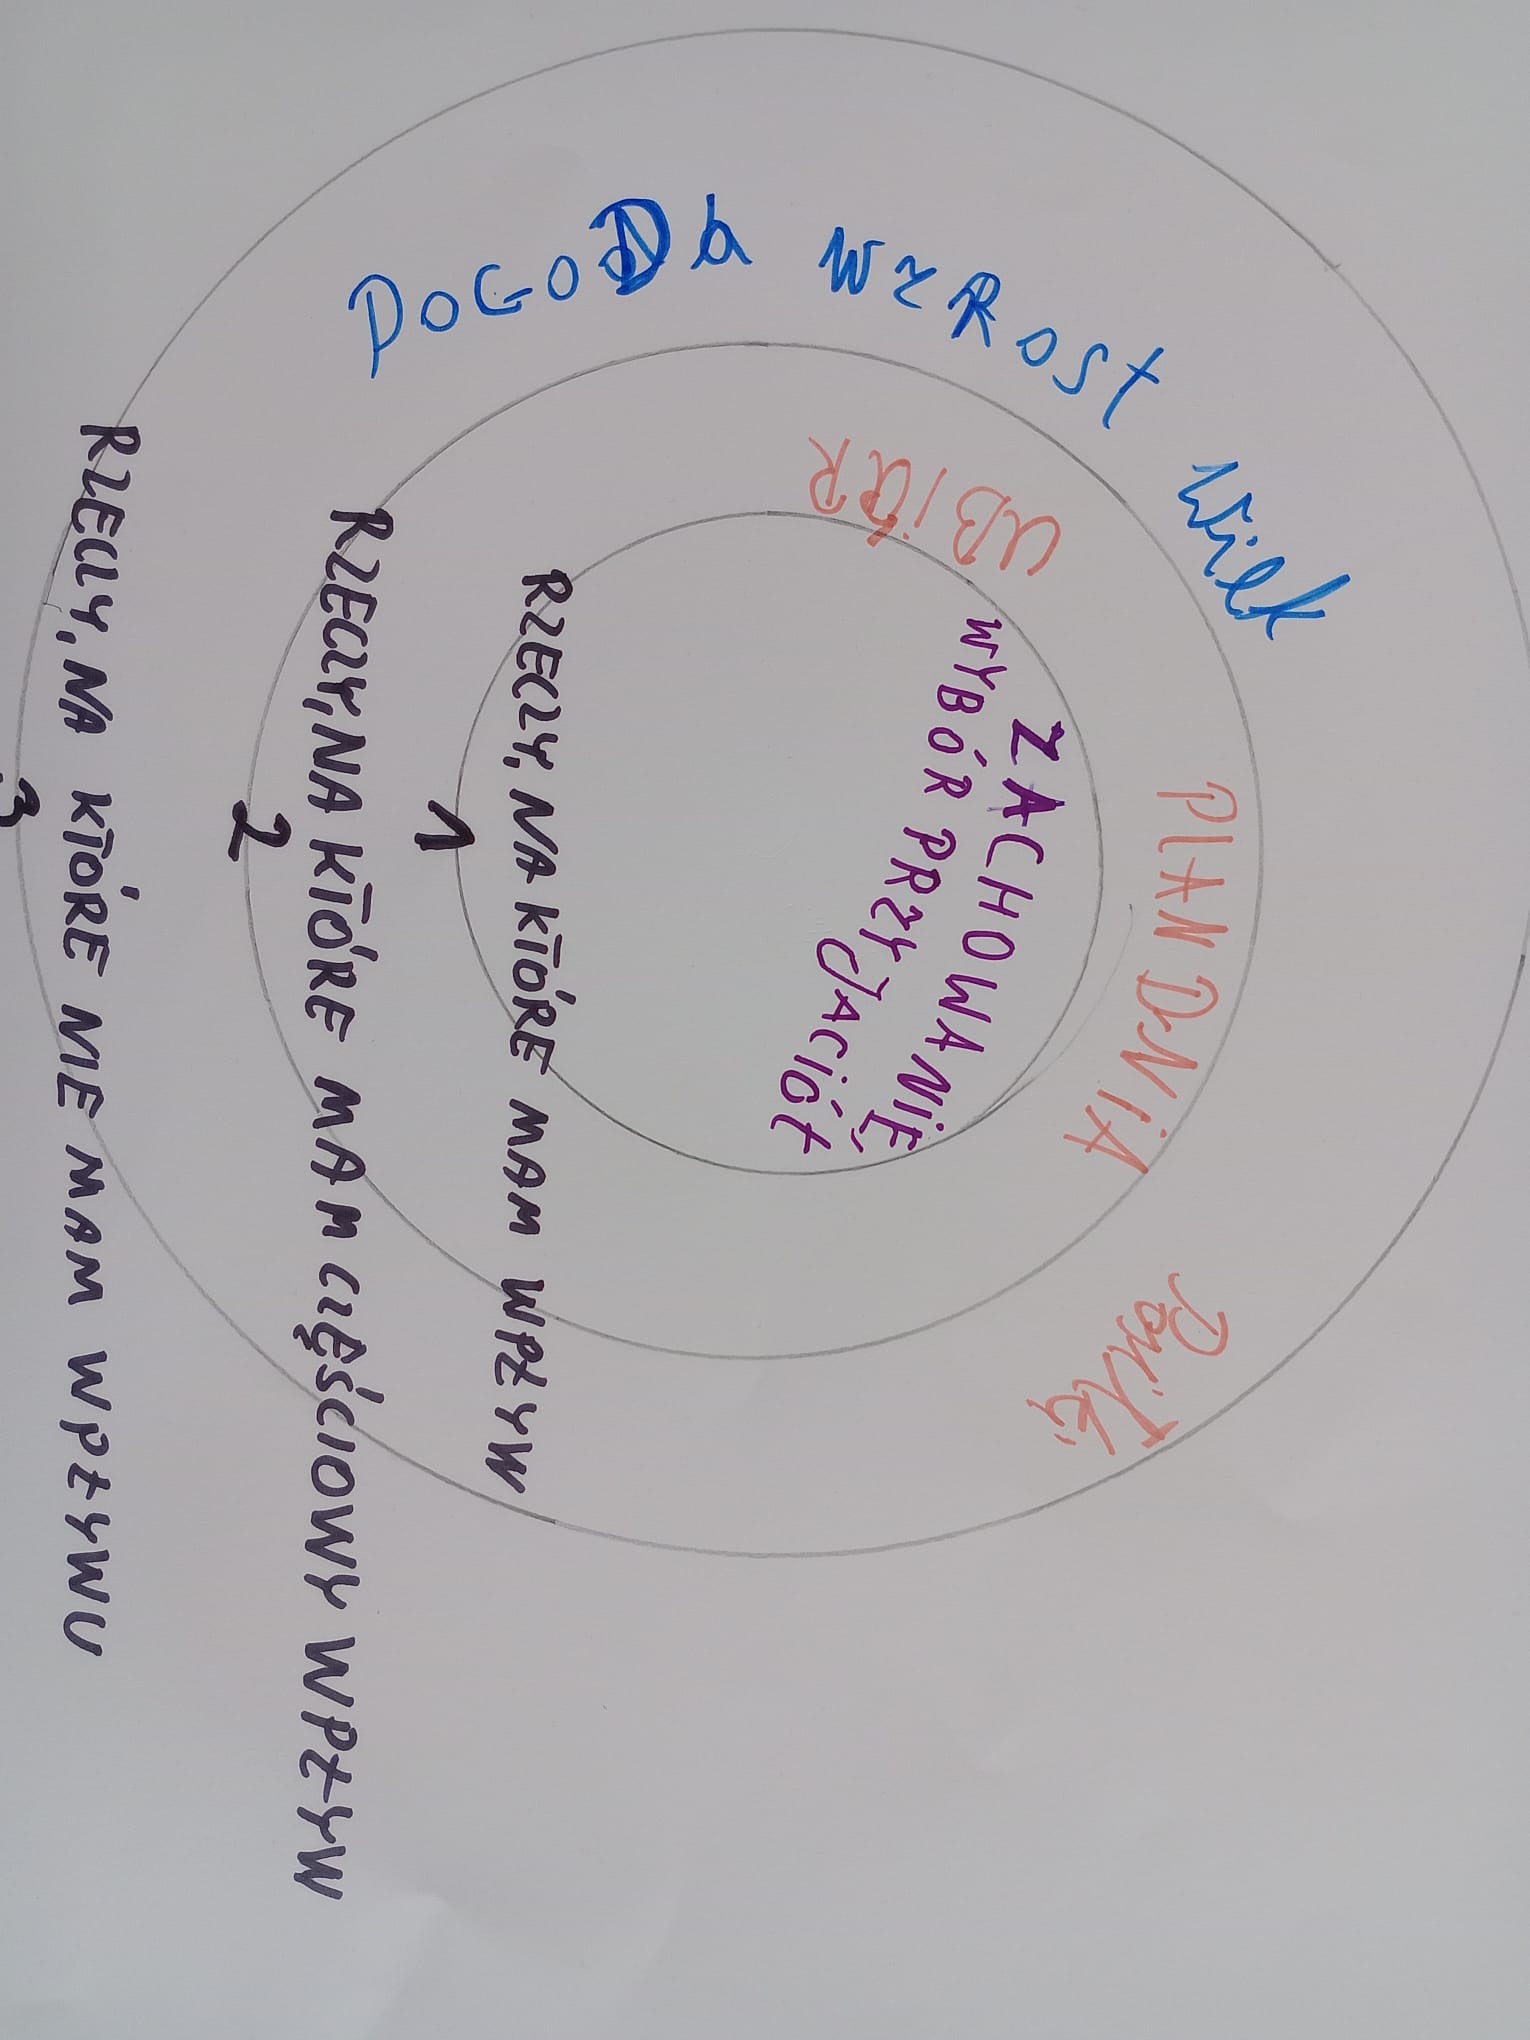 POGODA WZROST Wiek
UBIÓR
PLAN DNIA
Posiłki
ZACHOWANIE
WYBÓR PRZYJACIÓŁ
RZECZY, NA KTÓRE MAM WPŁYW
1
RZECZY, NA KTÓRE MAM CZĘŚCIOWY WPŁYW
2
RZECZY, NA KTÓRE NIE MAM WPŁYWU
3